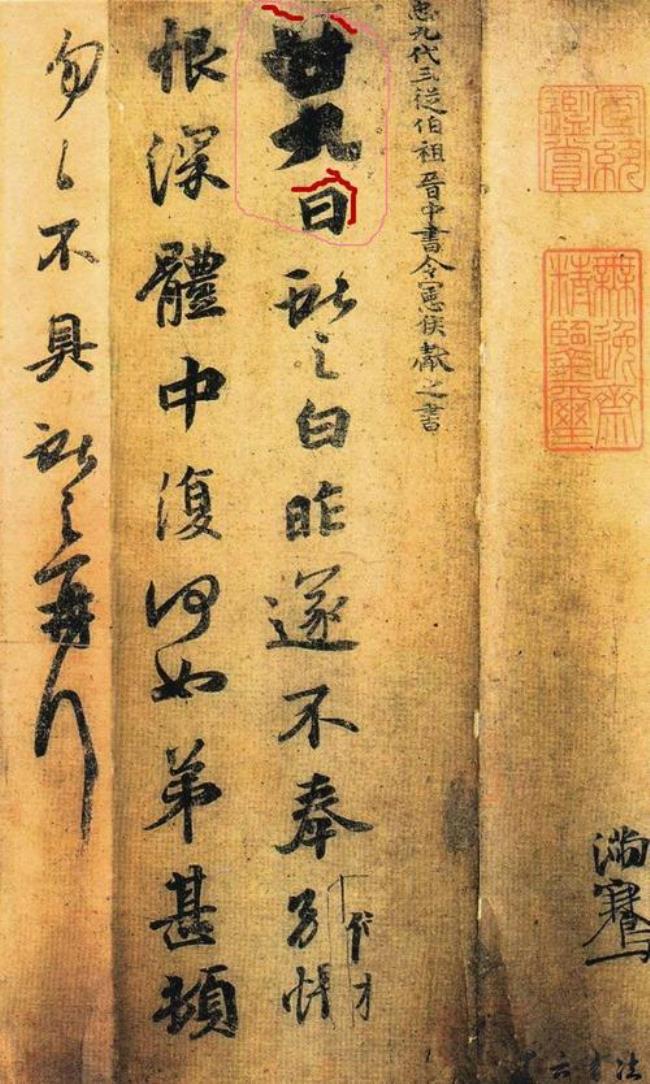 宣統
鑑賞
無逸齋
精鑑璽
滿騫
九代三從伯祖晉中書令憲侯獻之書
廿九日獻之白昨遂不奉別悵
恨深體中復何如弟甚頓
匆匆不具獻之再拜